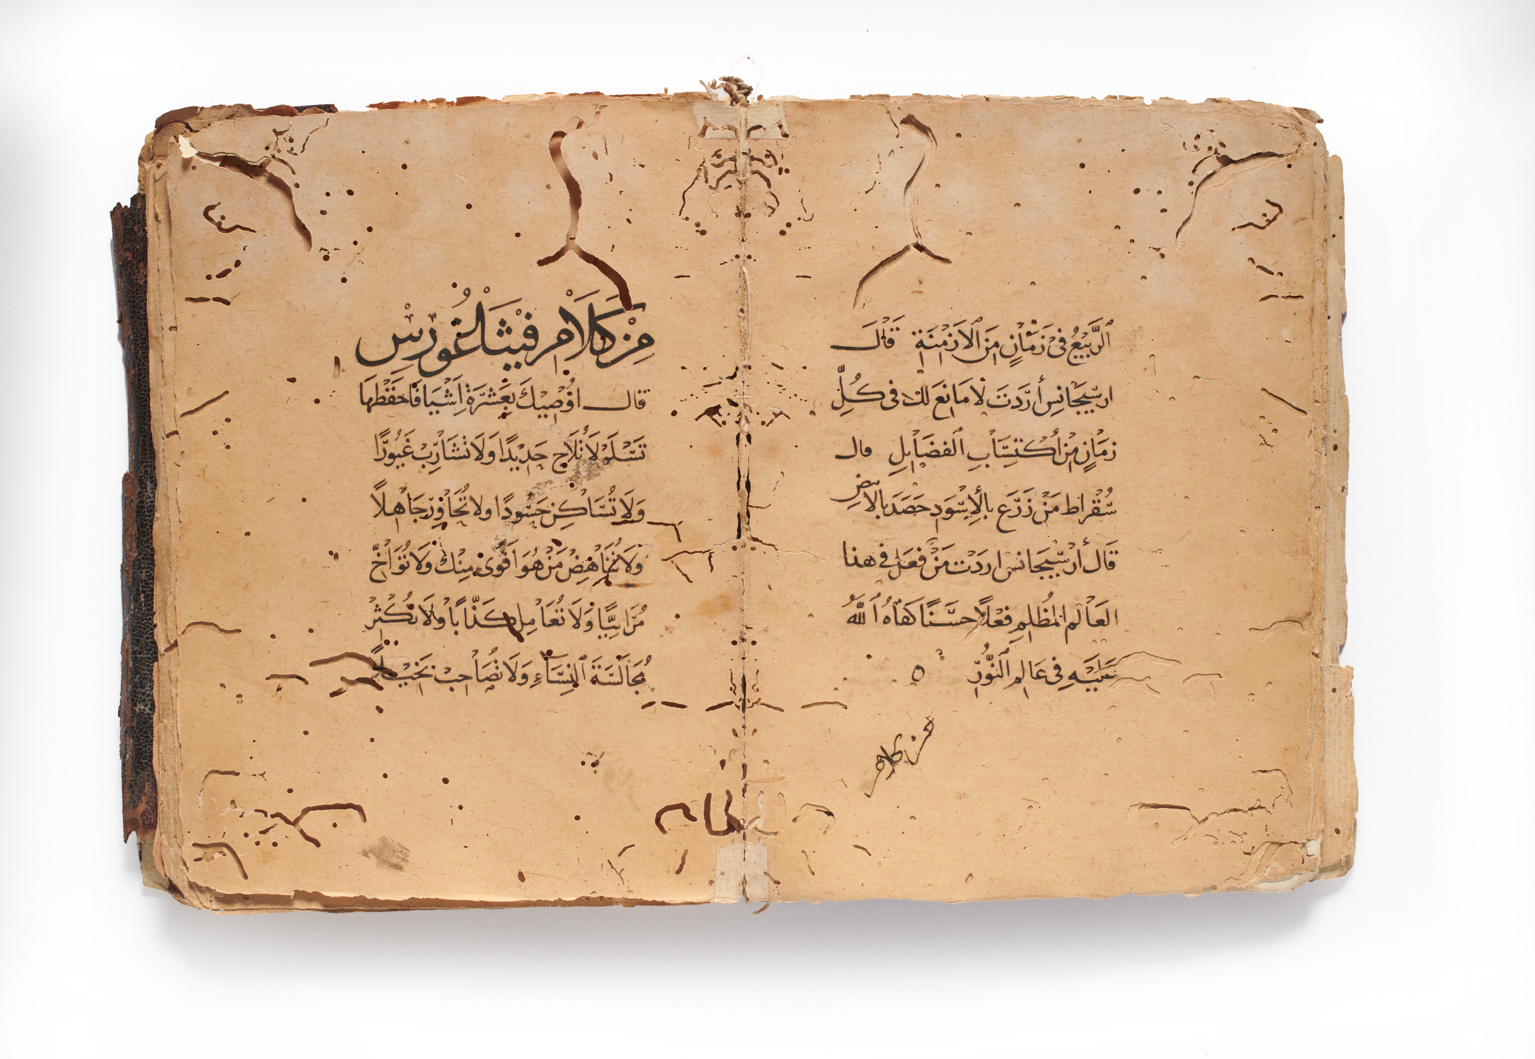 الرَّبيعُ فى زَمَانٍ مِنَ الاَزمِنَةِ قَالَ
ارسْيجَانِس أرَدتَ لا مَانعَ لك فى كُلِّ
زمَانٍ مِنْ اكْتِسَابِ الفَضَايلِ قال
سُقْراط مَنْ زَرَعَ بالأسْوَدِ حَصَدَ بالابيَضِ
قَال أرْسيجَانس اردَت مَنْ فعَلَ فى هذا
العَالم المُظلمِ فعْلاً حَسَنًا كافاهُ اللَّهُ
عَليَهِ فى عَالمِ النُّورِ ه
من كلام
مِنْ كَلَامِ فيْثَاغُورسْ
قال اوُصيكَ بعَشرَةِ اَشْيَا فاحفَظهَا
تَسْلَمْ لَا تُلَاحِ حَديدًا وَلَا تشَاربْ غَيُورًا
وَلَا تُسَاكِنْ حَسُودًا ولا تُجَاورْ جَاهلاً
وَلَا تُنَاهِضْ مَنْ هُوَ اَقوَى مِنْكَ وَلَا تُوَاخِ
مُرَائيًا وَلَا تُعَامِل كَذَّابًا وَلَا تكُثرْ
مُجَالَسَةَ النِسَاءِ وَلَا تصَاحِبْ بَخيْلاً